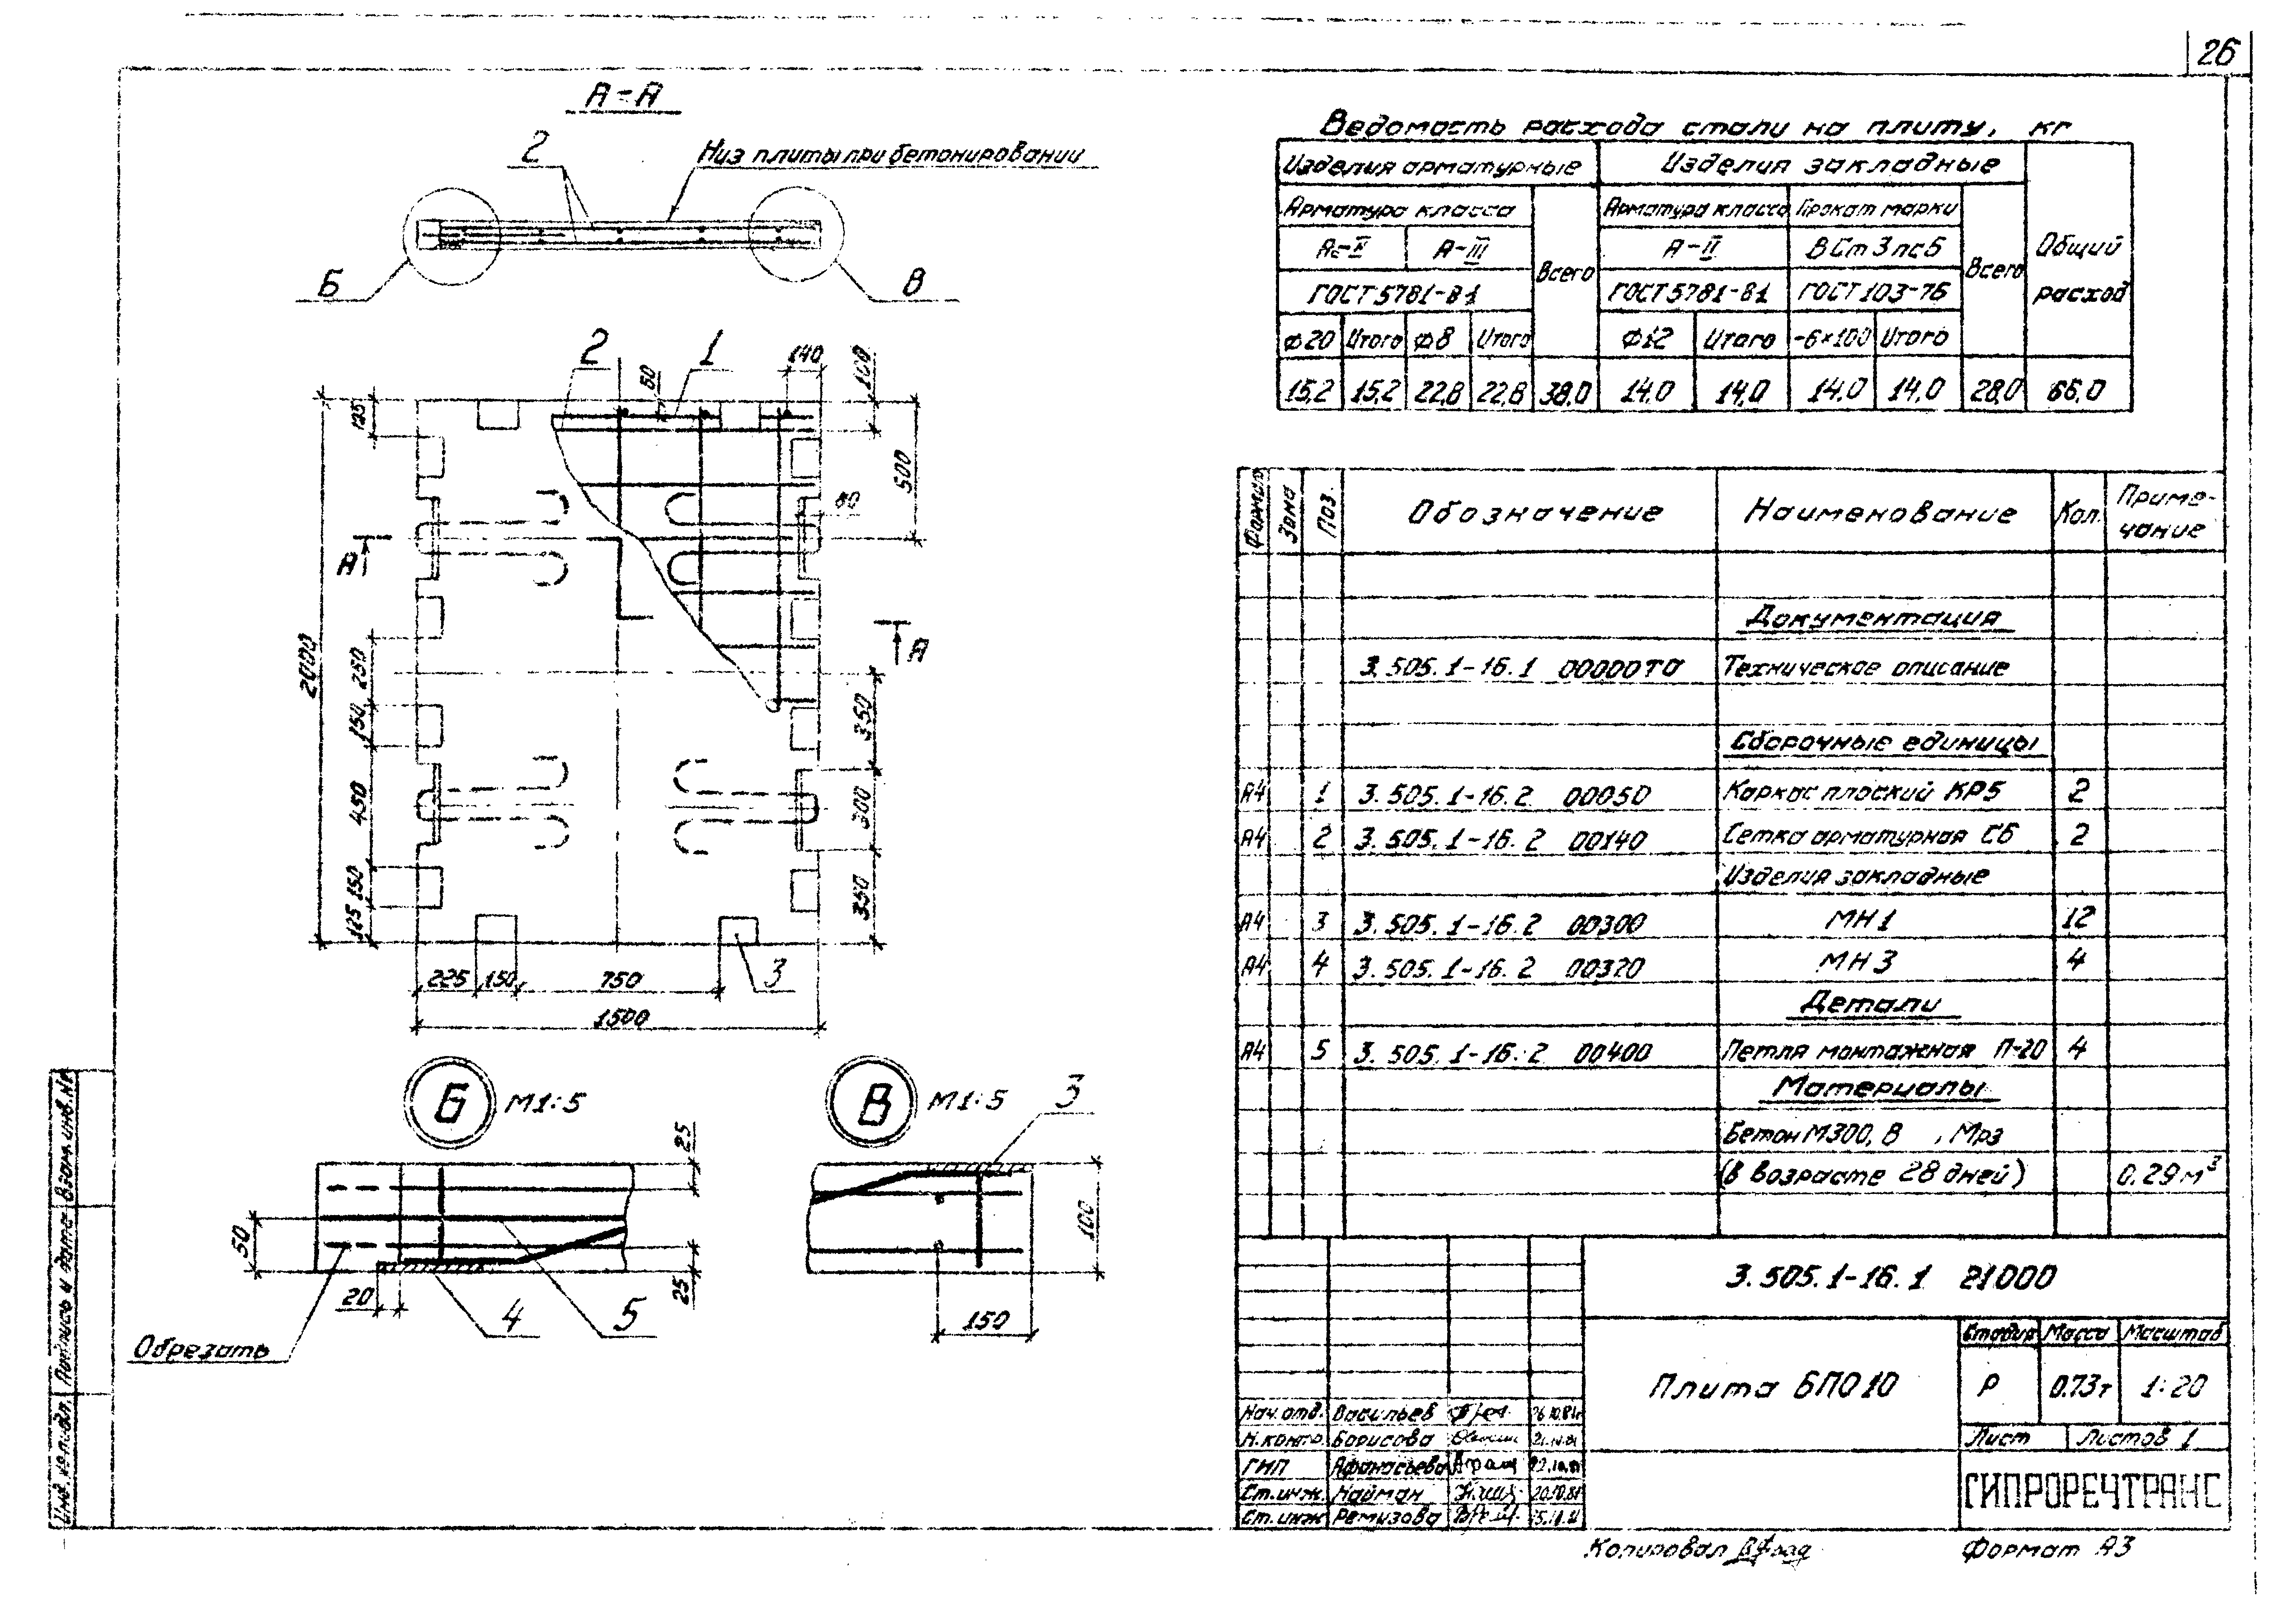 26
А-А
2
Низ плиты при бетонировании
Б
В
2
1
140
60
100
125
500
80
А
А
2000
250
150
450
150
125
350
300
350
3
225
150
750
1500
Б М1:5
В М1:5
3
25
50
25
20
4
5
Обрезать
100
150
Ведомость расхода стали на плиту, кг
Изделия арматурные
Изделия закладные
Общий расход
Арматура класса
Всего
Арматура класса
Прокат марки
Всего
А-III
А-II
ВСт3пс6
ГОСТ 5781-81
ГОСТ 5781-81
ГОСТ 103-76
ф20 Итого ф8 Итого ф12 Итого -6×100 Итого
15,2 15,2 22,8 22,8 38,0 14,0 14,0 14,0 14,0 28,0 66,0
Формат Зона Поз. Обозначение Наименование Кол. Примечание
Документация
3.505.1-16.1 00000ТО Техническое описание
Сборочные единицы
А4 1 3.505.1-16.2 00050 Каркас плоский КР5 2
А4 2 3.505.1-16.2 00140 Сетка арматурная С6 2
Изделия закладные
А4 3 3.505.1-16.2 00300 МН1 12
А4 4 3.505.1-16.2 00320 МН3 4
Детали
А4 5 3.505.1-16.2 00400 Петля монтажная П-20 4
Материалы
Бетон М300, В , Мрз
(в возрасте 28 дней) 0.29 м³
3.505.1-16.1 21000
Плита БПО10
Стадия Масса Масштаб
Р 0.73т 1:20
Лист Листов 1
ГИПРОРЕЧТРАНС
Нач. отд. Васильев
Н. контр. Борисова
ГИП Афанасьева
Ст. инж. Найман
Ст. инж. Ремизова
Копировал
Формат А3
Инв. № подл. Подпись и дата Взам. инв. №